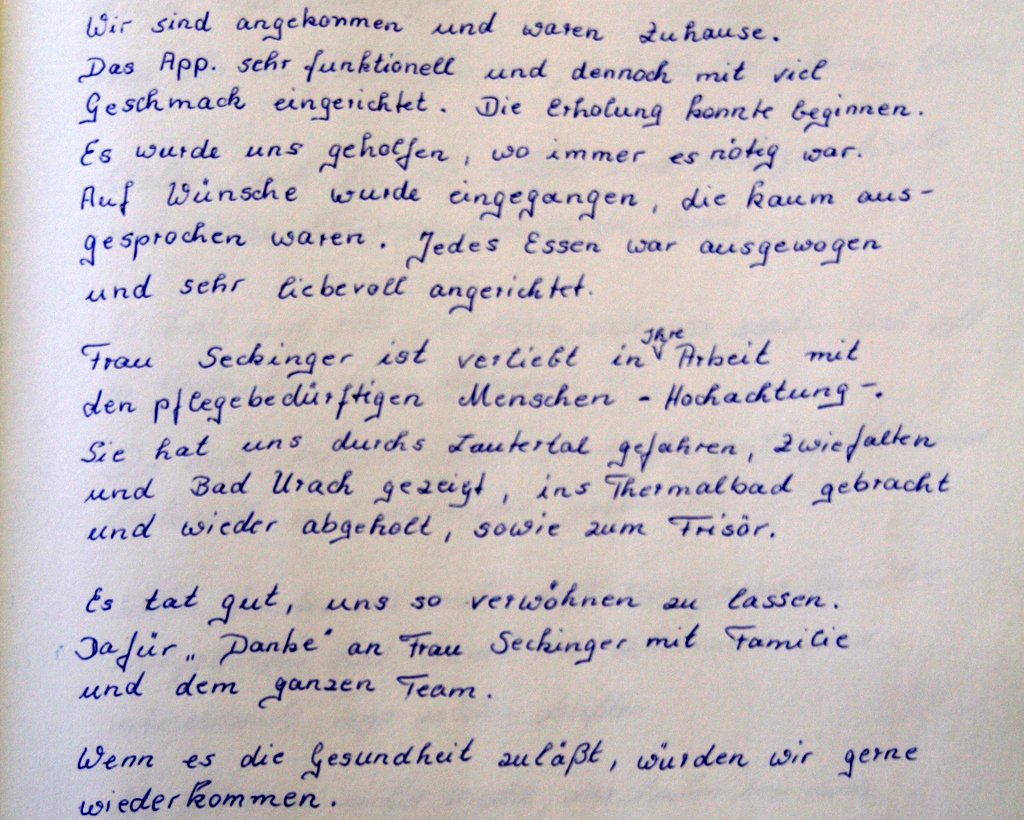 Wir sind angekommen und waren zuhause.
Das App. sehr funktionell und dennoch mit viel
Geschmack eingerichtet. Die Erholung konnte beginnen.
Es wurde uns geholfen, wo immer es nötig war.
Auf Wünsche wurde eingegangen, die kaum aus-
gesprochen waren. Jedes Essen war ausgewogen
und sehr liebevoll angerichtet.
Frau Seckinger ist verliebt in Ihre Arbeit mit
den pflegebedürftigen Menschen - Hochachtung -.
Sie hat uns durchs Lautertal gefahren, Zwiefalten
und Bad Urach gezeigt, ins Thermalbad gebracht
und wieder abgeholt, sowie zum Frisör.
Es tat gut, uns so verwöhnen zu lassen.
Dafür „Danke" an Frau Seckinger mit Familie
und dem ganzen Team.
Wenn es die Gesundheit zuläßt, würden wir gerne
wiederkommen.